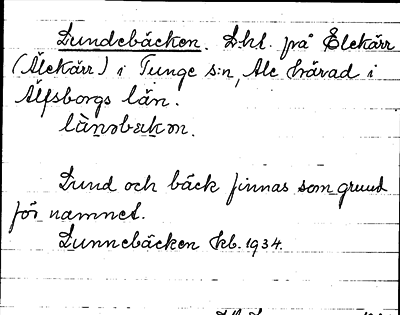 Lundebäcken. D.hl. på Älekärr
(Älekärr) i Tunge s:n, Ale härad i
Älfsborgs län.
Lund och bäck finnas som grund
för namnet.
Lunnebäcken kb. 1934.